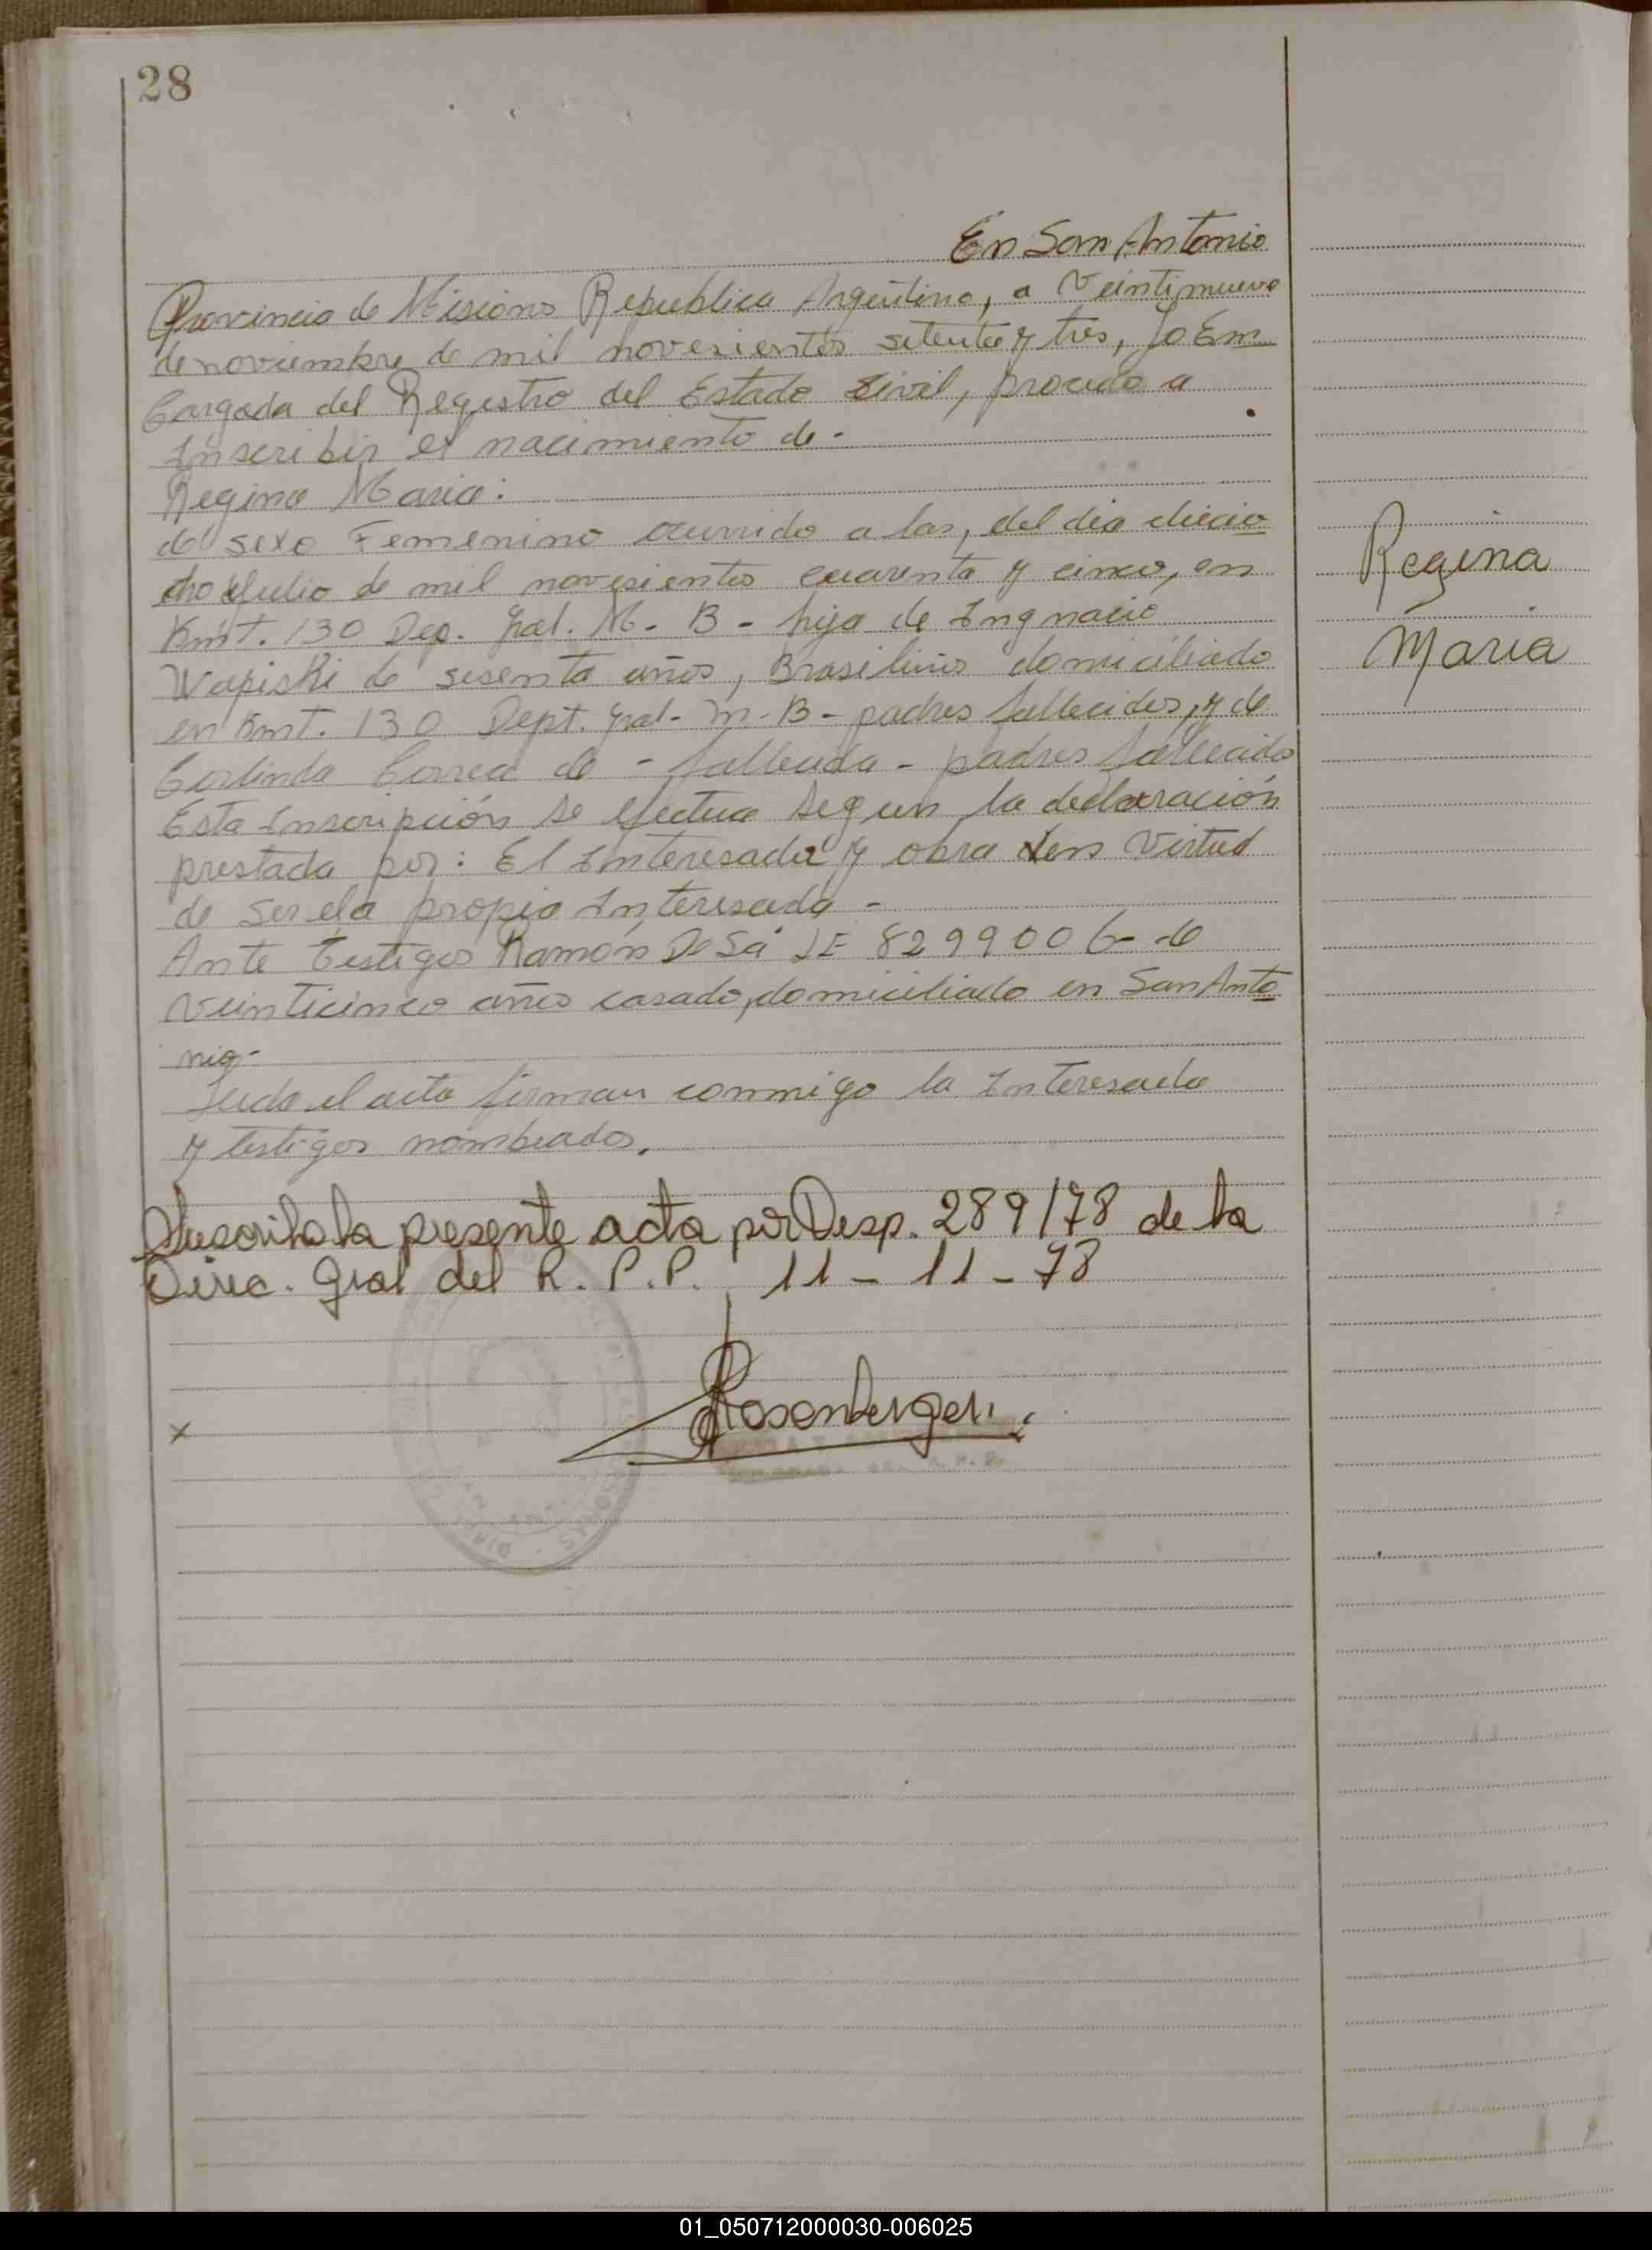 28
En San Antonio
Provincia de Misiones Republica Argentina, a Veintinueve
de noviembre de mil novesientos setenta y tres, Yo En
Cargada del Registro del Estado Sivil, procedo a
Inscribir el nacimiento de -
Regina Maria:
de sexo Femenino ocurrido a las, del dia diecio
cho de Julio de mil novesientos cuarenta y cinco, en
Kmt. 130 Dep. Gral. M. B - hija de Ingnacio
Wapiski de sesenta años, Brasileño domiciliado
en Kmt. 130 Dept. Gral - M - B - padres fallecidos, y de
Correa de - fallecida - padres fallecido
Esta Inscripción se efectua segun la declaración
prestada por: El Interesada y obra en Virtud
de ser ela propia Interesada -
Ante testigos Ramón De Sá LE 8299006 - de
Veinticinco años casado, domiciliado en San Anto
nio -
Leida el acta firman conmigo la Interesada
y testigos nombrados.
Suscrita la presente acta por Desp. 289/78 de la
Direc. Gral del R. P. P. 11 - 11 - 78
Rosenberger
x
Regina
Maria
01_050712000030-006025